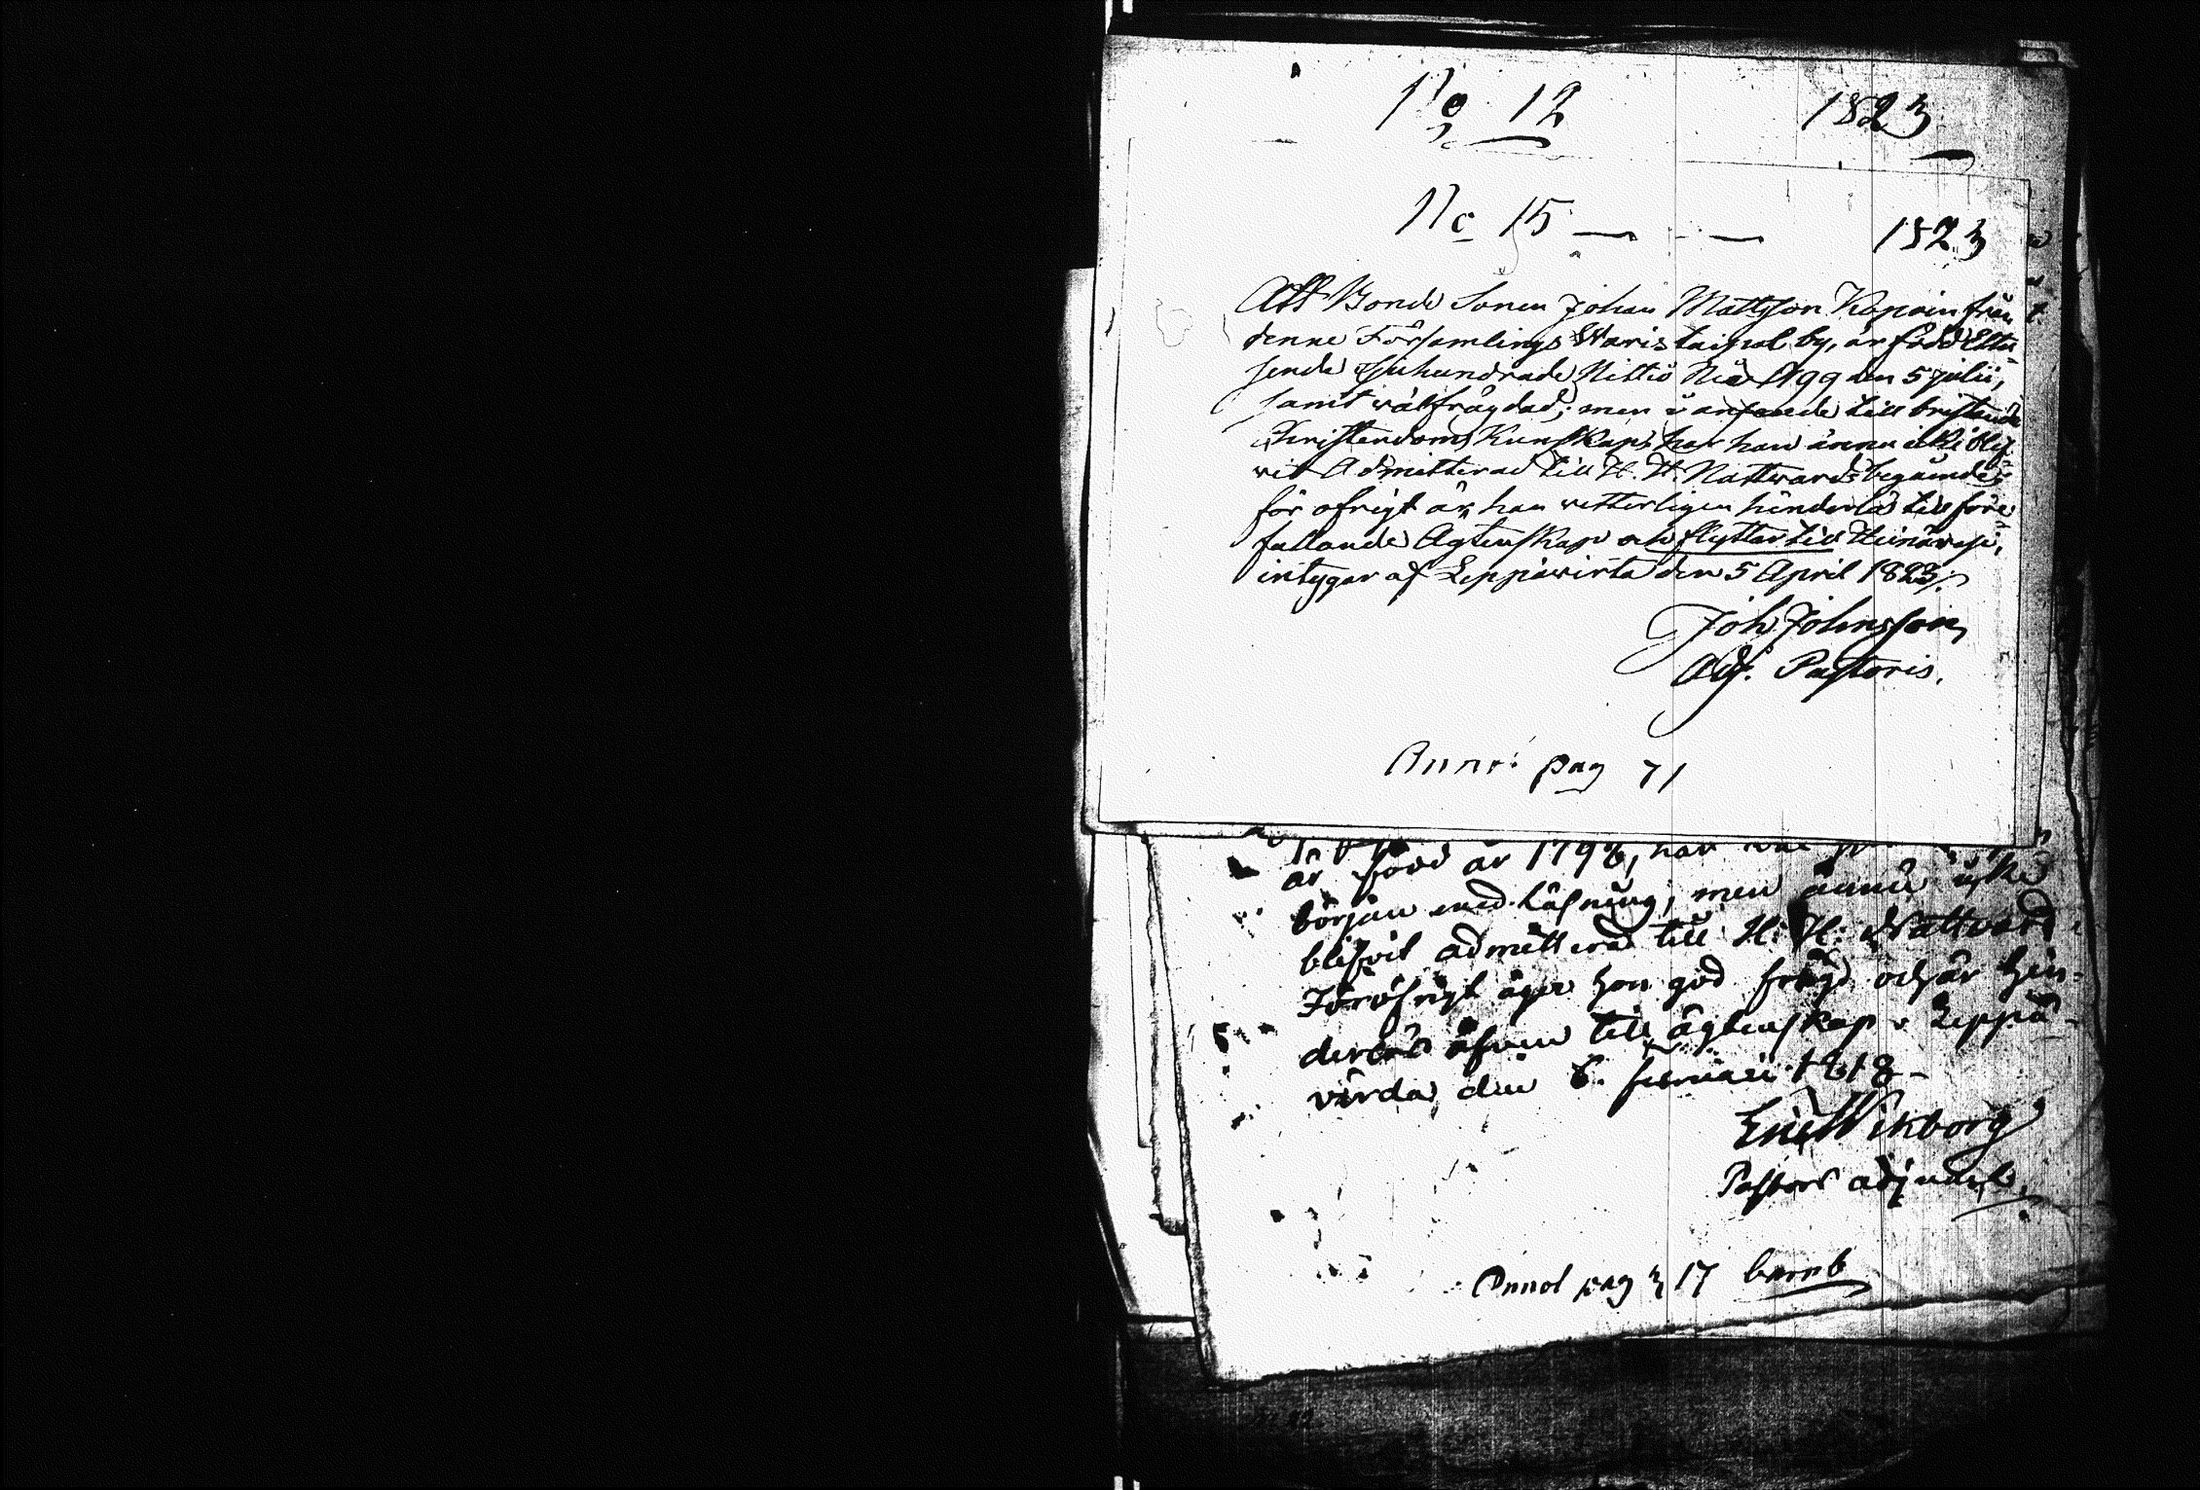 No 12 1823
No 15 — — 1823
Att Bonde Sonen Johan Mattsson Kapain från
denne Församlings Waris taipal by, är född Ettu-
sende Sjuhundrade Nittio Nio 1799 den 5 Julii,
samt wälfrägdad; men i anseende till bristande
Christendoms Kunskap, har han ännu icke blif-
wit Admitterad till H. H. Nattwards begående;
för öfrigt är han wetterligen hinderlös till före
fallande Ägtenskap och flyttar till Heinäwesi,
intygar af Leppäwirta den 5 April 1823.
Joh Johnsson,
Adj. Pastoris.
Annot: pag 71
är född år 1798, har
början med läsning, men ännu icke
blifvit admitterad till H. H. Nattvard.
Föröfrigt äger hon god frägd och är hin-
derlös äfven till ägtenskap. Leppä-
virda den 6. Februarii 1818 -
Eric Wikborg
Pastors adjunct.
Annot pag 317